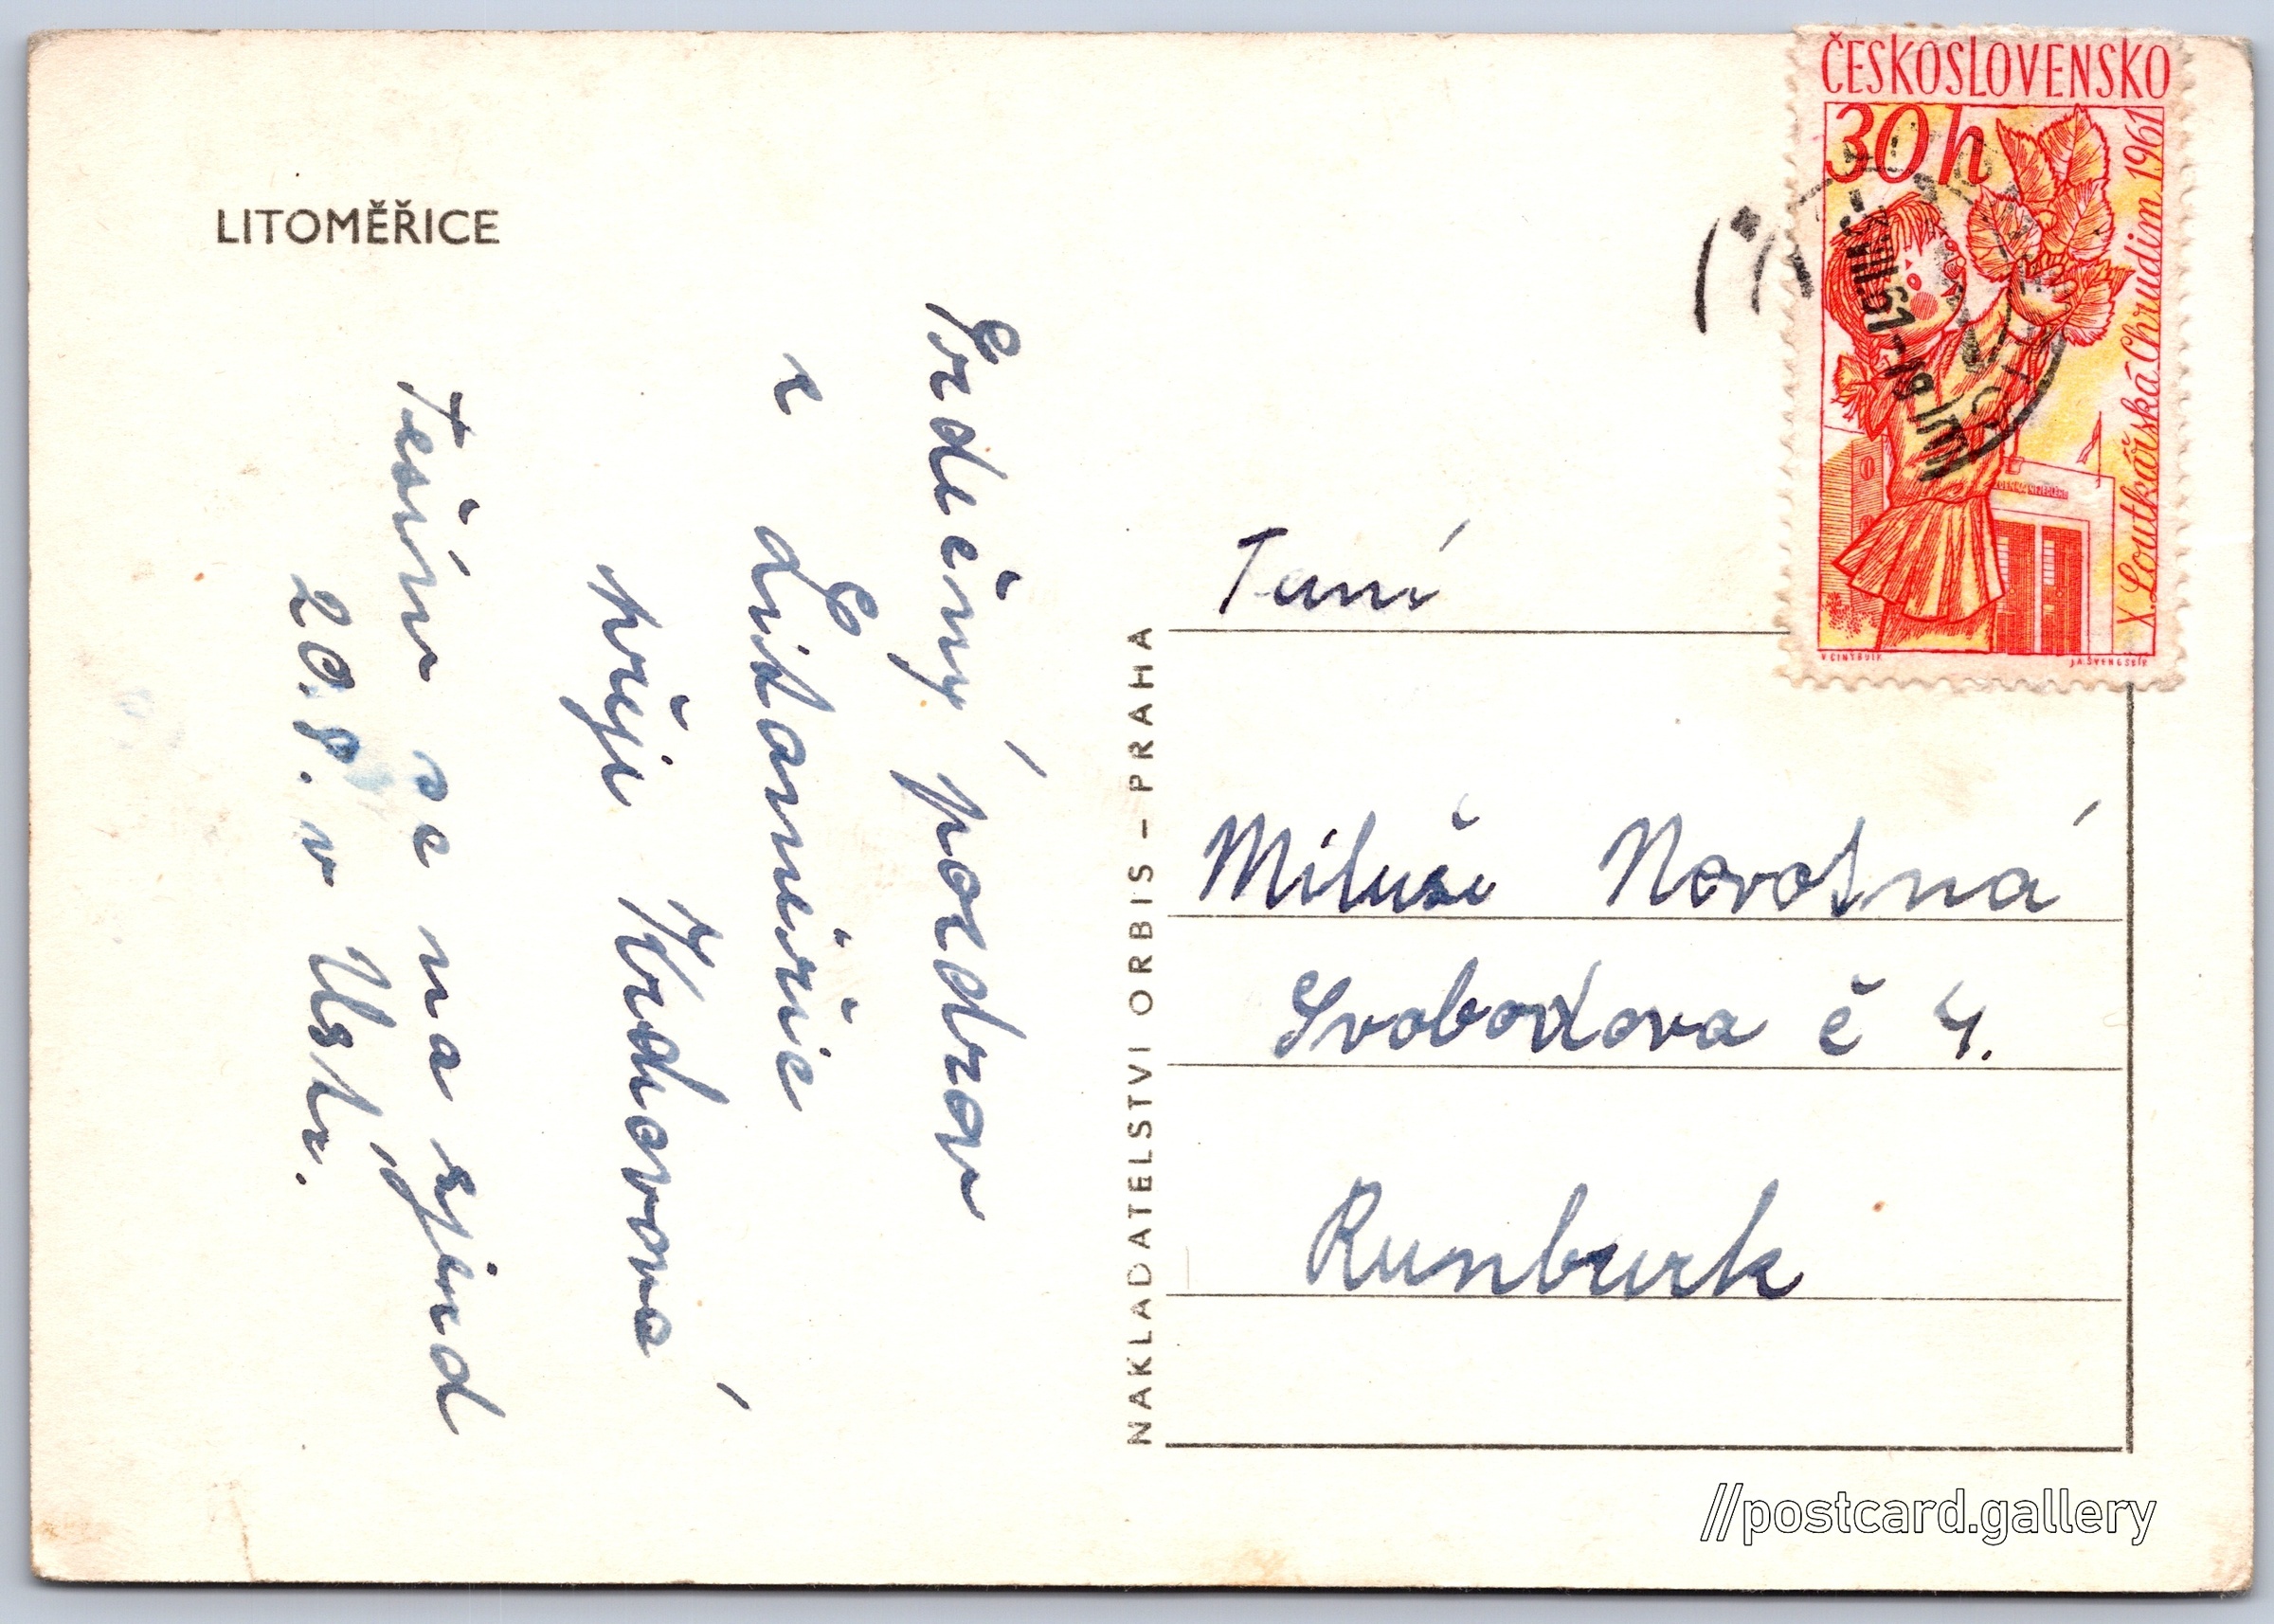 LITOMĚŘICE
Srdečný pozdrav
z Litoměřic
přeje Kuducová
Těším se na zájezd
20.8. v Ustí.
NAKLADATELSTVÍ ORBIS – PRAHA
ČESKOSLOVENSKO
30 h
X. Loutkářská Chrudim 1961
V. CINTBULK
J.A. ŠVENGSBÍR
Taní
Miluše Novotná
Svobodova č 4.
Runburk
//postcard.gallery